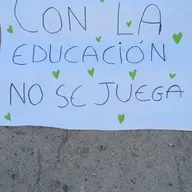 CON LA
EDUCACIÓN
NO SE JUEGA